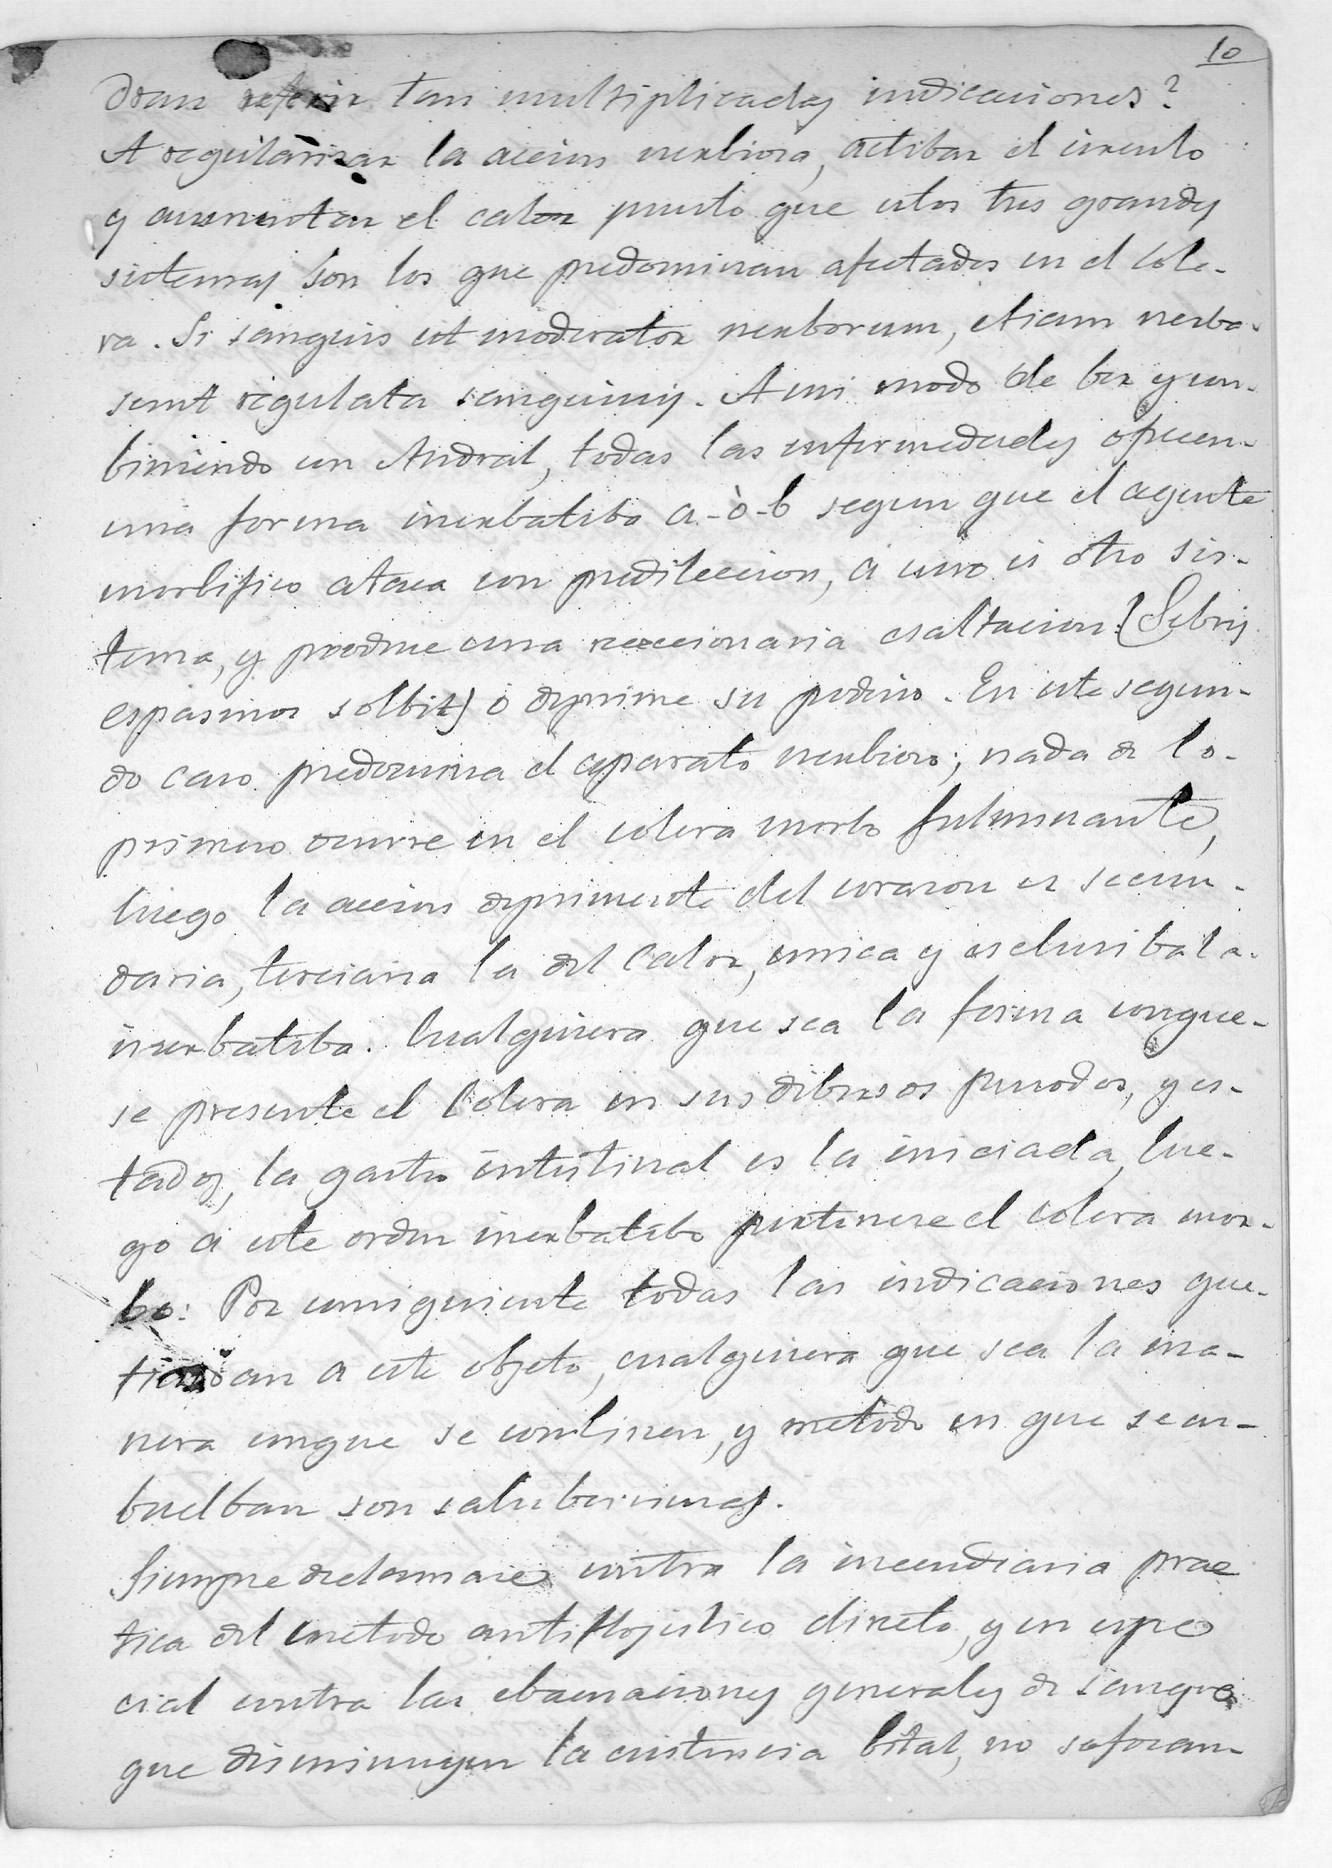 10
dran referir tan multiplicadas indicaciones?
A regularizar la accion nerbiosa, actibar el circulo
y aumentar el calor puesto que estos tres grandes
sistemas son los que predominan afectados en el Cole-
ra. Si sanguis est moderator nerborum, etiam nerba-
sunt regulata sanguinis. A mi modo de ber y con-
biniendo con Andral, todas las enfermedades ofrecen-
una forma inerbatiba a-ò-b segun que el agente
morbifico ataca con predileccion, á uno ú otro sis-
tema, y produce una reaccionaria esaltacion (Febris
espasmos solbit) ó deprime su poderio. En este segun-
do caso predomina el aparato nerbioso; nada de lo-
primero ocurre en el colera morbo fulminante,
luego la accion deprimente del corazon es secun-
daria, terciaria la del Calor, unica y esclusiba la-
inerbatiba. Cualquiera que sea la forma conque-
se presente el Colera en sus dibersos periodos, y es-
tados, la gastro intestinal es la iniciada, lue-
go a este orden inerbatibo pertenece el colera mor-
bo: Por consiguiente todas las indicaciones que-
tiendan a este objeto, cualquiera que sea la ma-
nera conque se combinen, y metodo en que se en-
buelban son saluberrimas.
Siempre declamaré contra la incendiaria prac
tica del metodo antiflojistico directo, y en espe
cial contra las ebacuaciones generales de sangre
que disminuyen la existencia bital, no seforan-